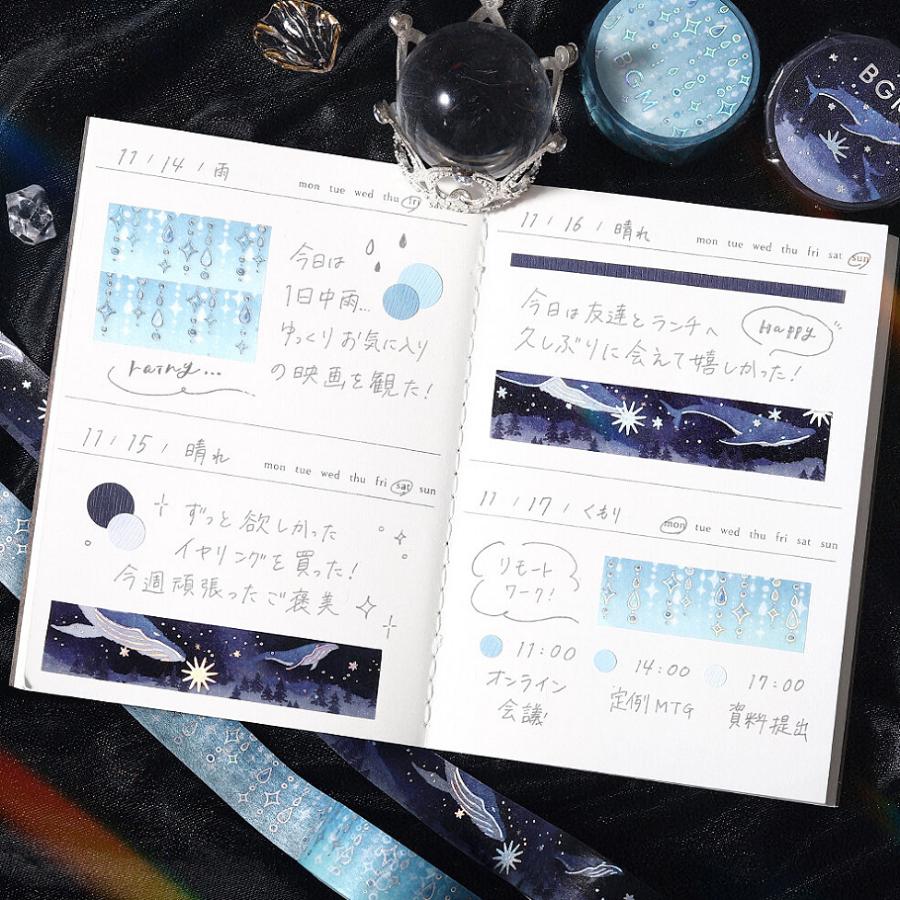 BGM
BGM
11 / 14 / 雨
mon tue wed thu fri sa
今日は
1日中雨...
ゆっくりお気に入り
の映画を観た!
rainy...
11 / 15 / 晴れ
mon tue wed thu fri sat sun
ずっと欲しかった
イヤリングを買った!
今週頑張ったご褒美
11 / 16 / 晴れ
mon tue wed thu fri sat sun
今日は友達とランチへ
久しぶりに会えて嬉しかった!
Happy
11 / 17 / くもり
mon tue wed thu fri sat sun
リモート
ワーク!
11:00
オンライン
会議
14:00
定例MTG
17:00
資料提出